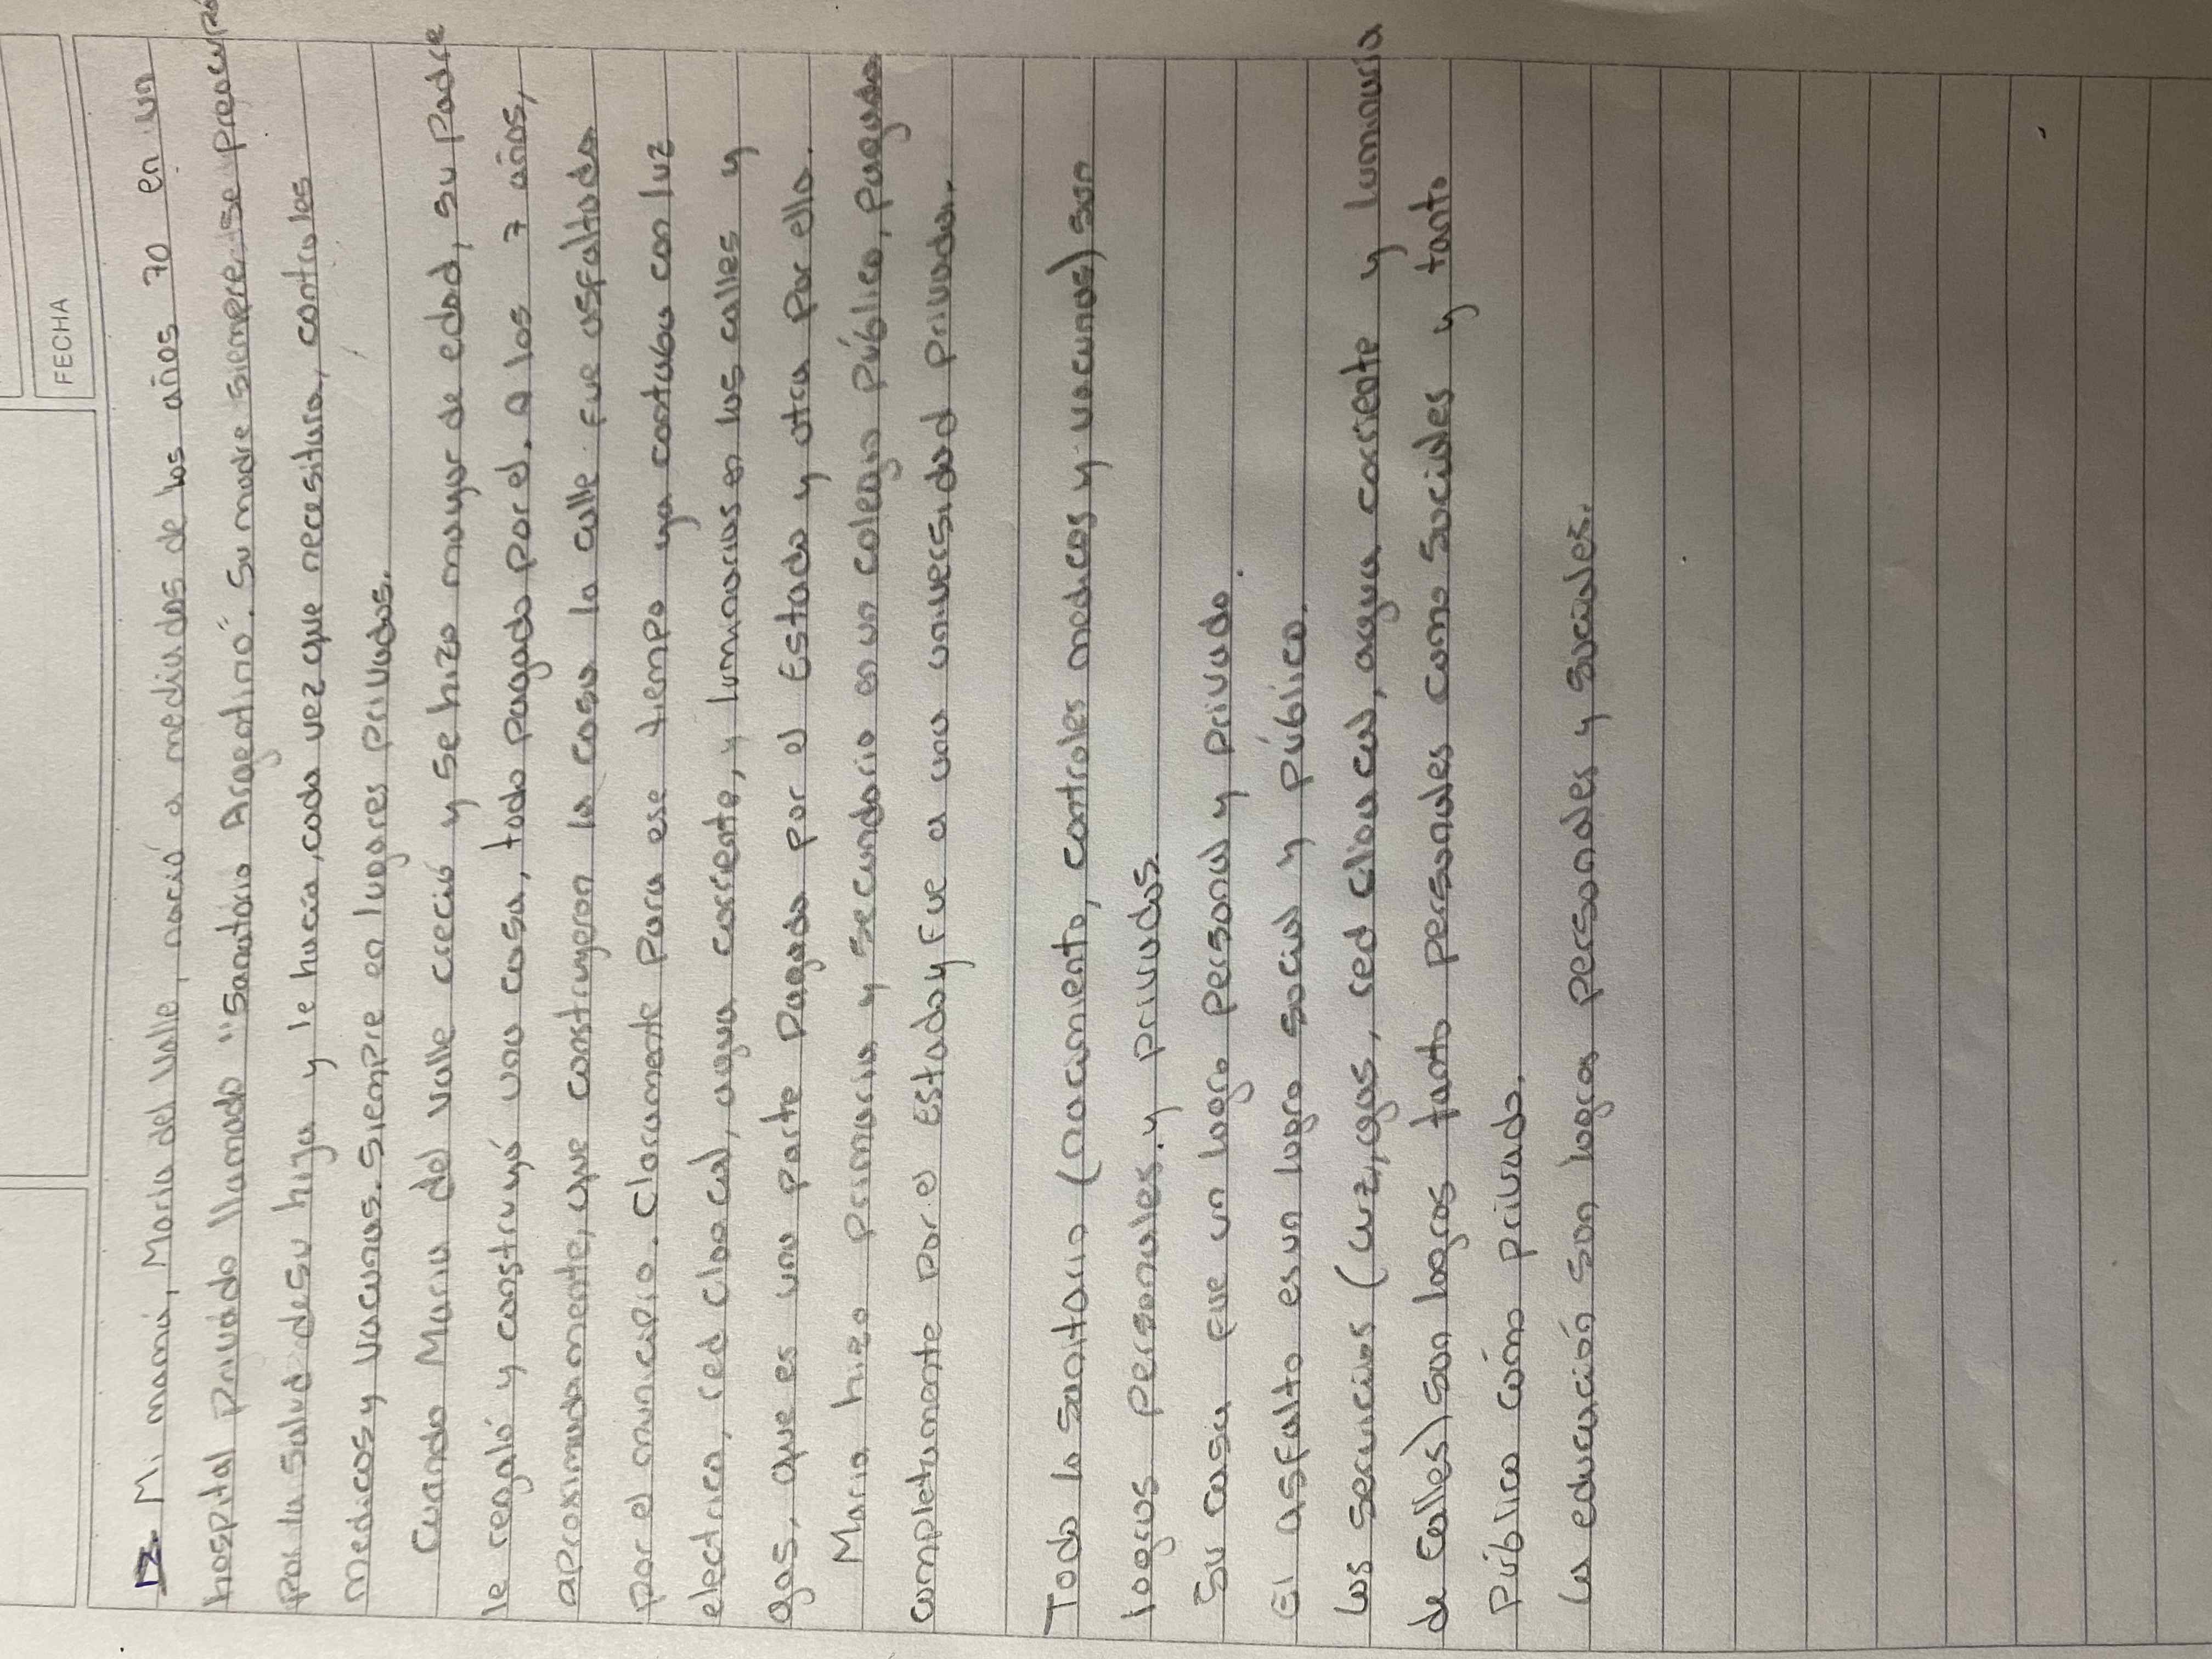 FECHA
Mi mamá, Maria del Valle, nació a mediados de los años 70 en un
hospital privado llamado "Sanatorio Argentino". Su madre siempre se preocupó
por la salud de su hija y le hacia, cada vez que necesitara, controles
medicos y vacunas. Siempre en lugares privados.
Cuando Maria del Valle creció y se hizo mayor de edad, su Padre
le regaló y construyó una casa, todo pagado por el. a los 7 años,
aproximadamente, que construyeron la casa la calle fue asfaltada
por el municipio. Claramente para ese tiempo ya contaba con luz
electrica, red cloacal, agua corriente, y luminarias en las calles y
gas, que es una parte pagada por el Estado y otra por ella.
Maria hizo primaria y secundario en un colegio público, pagado
completamente por el Estado y fue a una universidad privada.
Todo lo sanitario (nacimiento, controles medicos y vacunas) son
logros personales. y privados.
Su casa fue un logro personal y privado.
El asfalto es un logro social y público.
Los servicios (Luz, gas, red cloacal, agua corriente y luminaria
de calles) son logros tanto personales como sociales y tanto
público cómo privado.
La educación son logros personales y sociales.